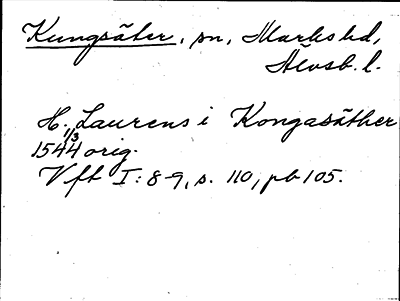 Kungsäter, sn, Marks hd,
Älvsb. l.
H. Laurens i Kongasäther
11/3
1544 orig.
Vft I: 8-9, s. 110, pb 105.